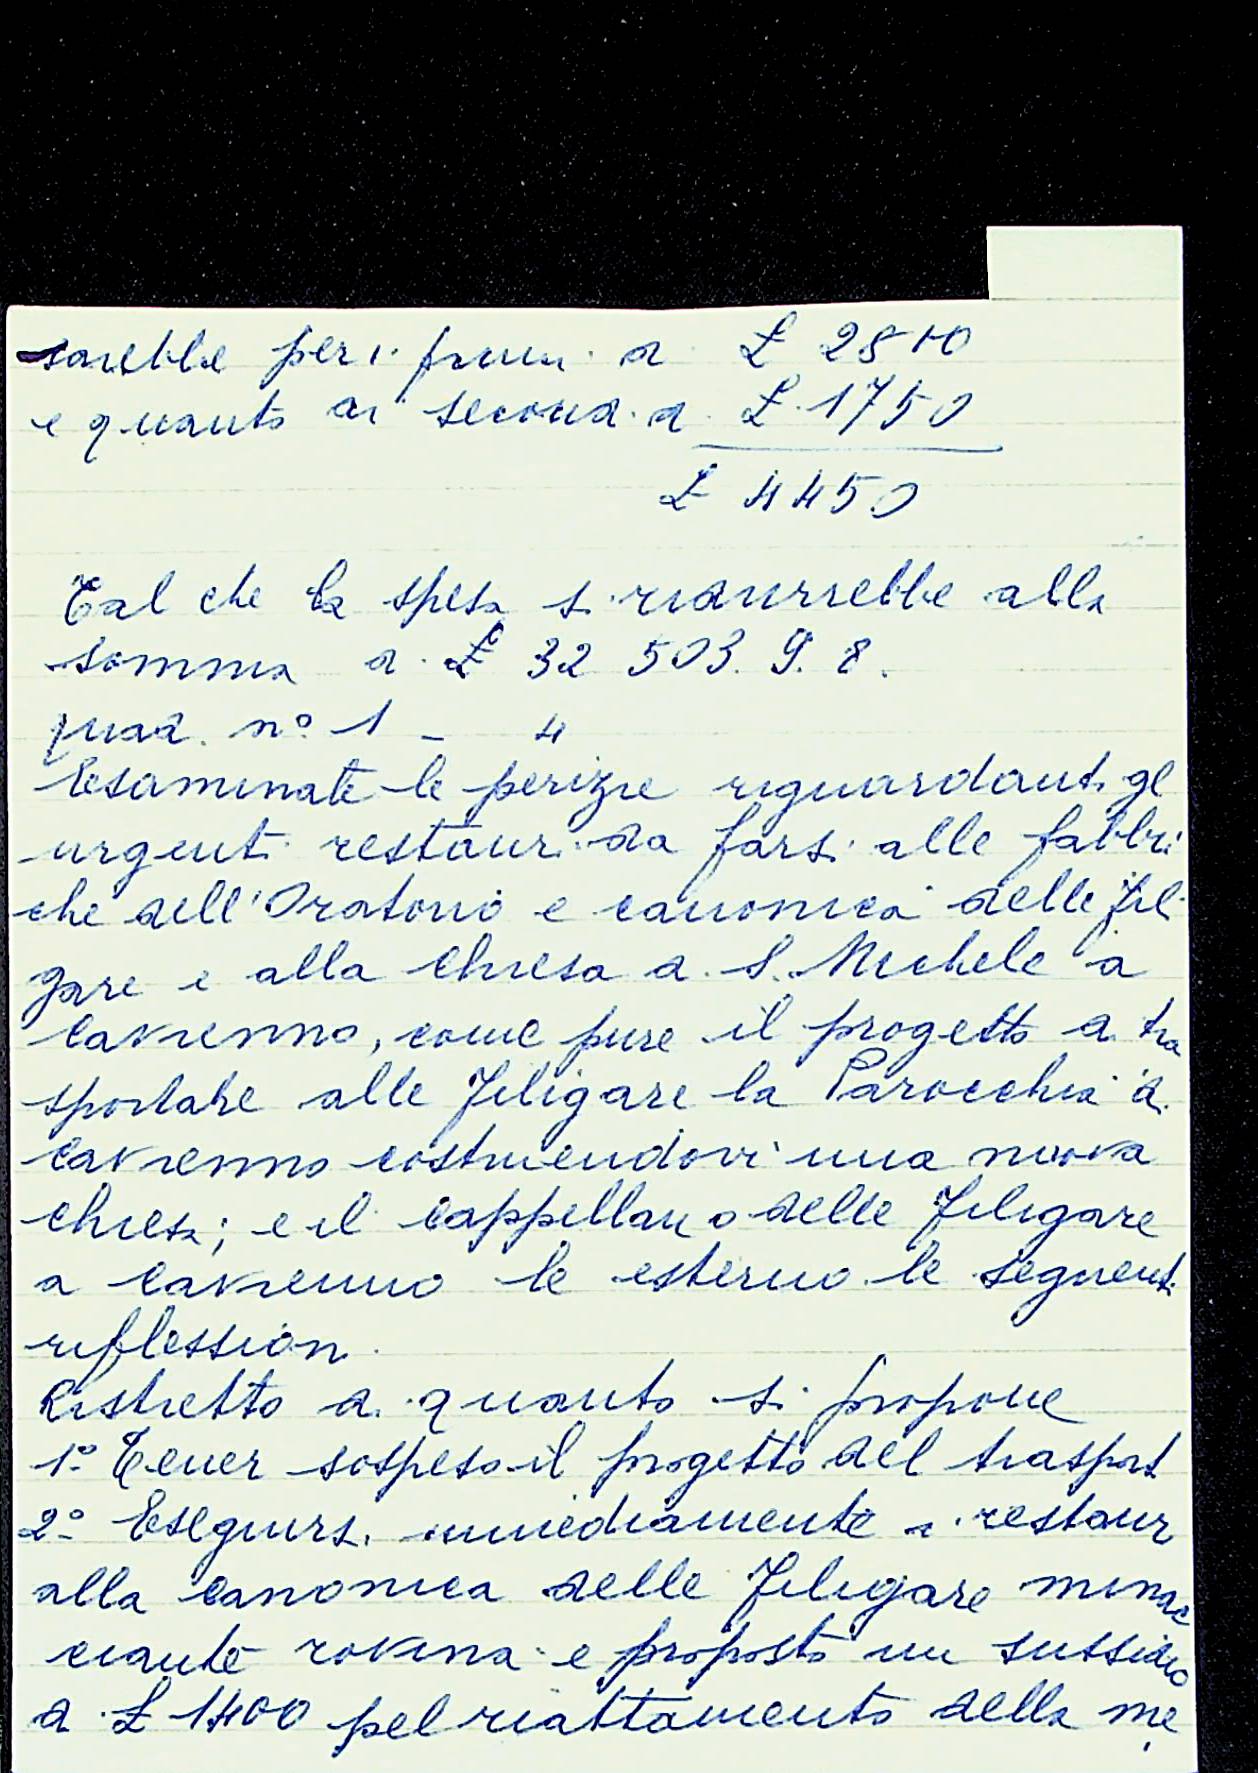 sarebbe per i primi di £ 2800
e quanto ai secondi di £. 1750
£ 4450
Tal che la spesa si ridurrebbe alla
somma di £ 32 503. 9. 8.
quad. n° 1 - 4
Esaminate le perizie riguardanti gl
urgenti restauri da farsi alle fabbri
che dell'Oratorio e canonica delle Fili
gare e alla Chiesa di S. Michele a
Cavrenno, come pure il progetto di tra
sportare alle Filigare la Parocchia di
Cavrenno costruendovi una nuova
chiesa; e il cappellano delle Filigare
a Cavrenno le esterno le seguenti
riflessioni.
Ristretto di quanto si propone
1° Tener sospeso il progetto del trasport
2° Eseguirsi immediamente i restaur
alla canonica delle Filigare minac
ciante rovina e proposto un sussidio
di £ 1400 pel riattamento della me